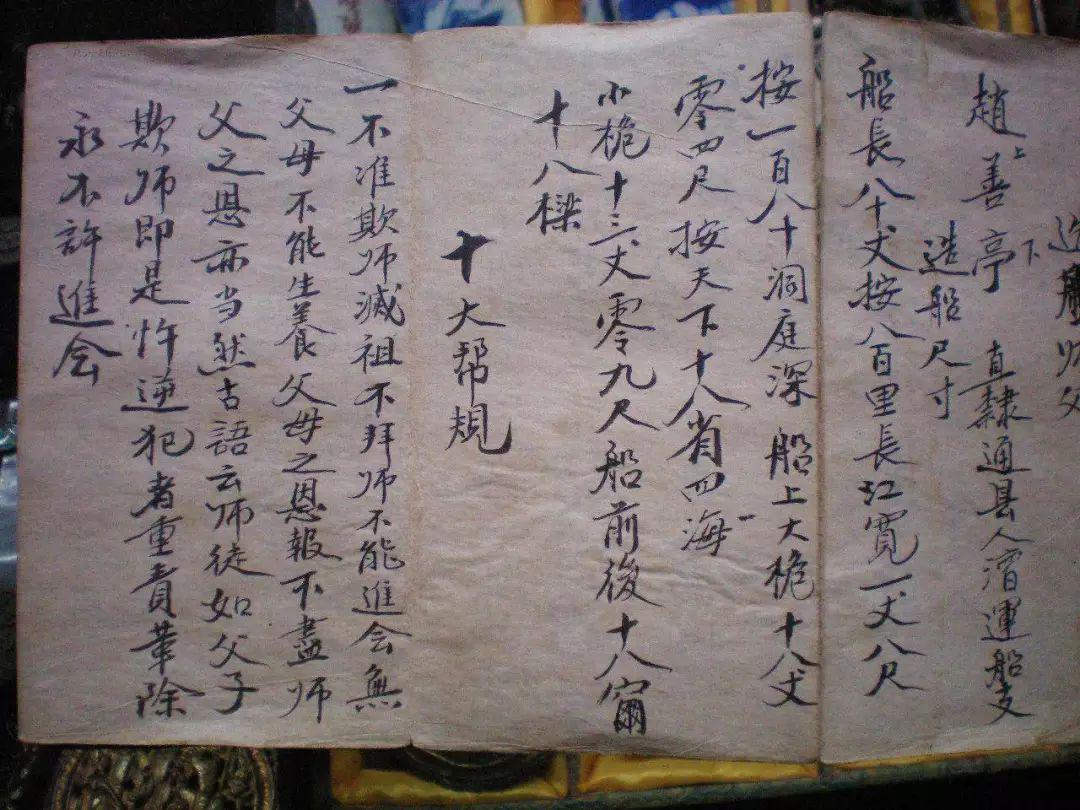 造船师父
趙上善下亭 直隸通县人漕運船支
造船尺寸
船長八十丈按八百里長江寬一丈八尺
按一百八十洞庭深 船上大桅十八丈
零四尺按天下十八省四海
小桅十三丈零九尺船前後十八
十八樑
十大帮規
一不准欺师滅祖不拜师不能進会無
父母不能生養父母之恩報不盡师
父之恩亦当然古語云师徒如父子
欺师即是忤逆犯者重責革除
永不許進会